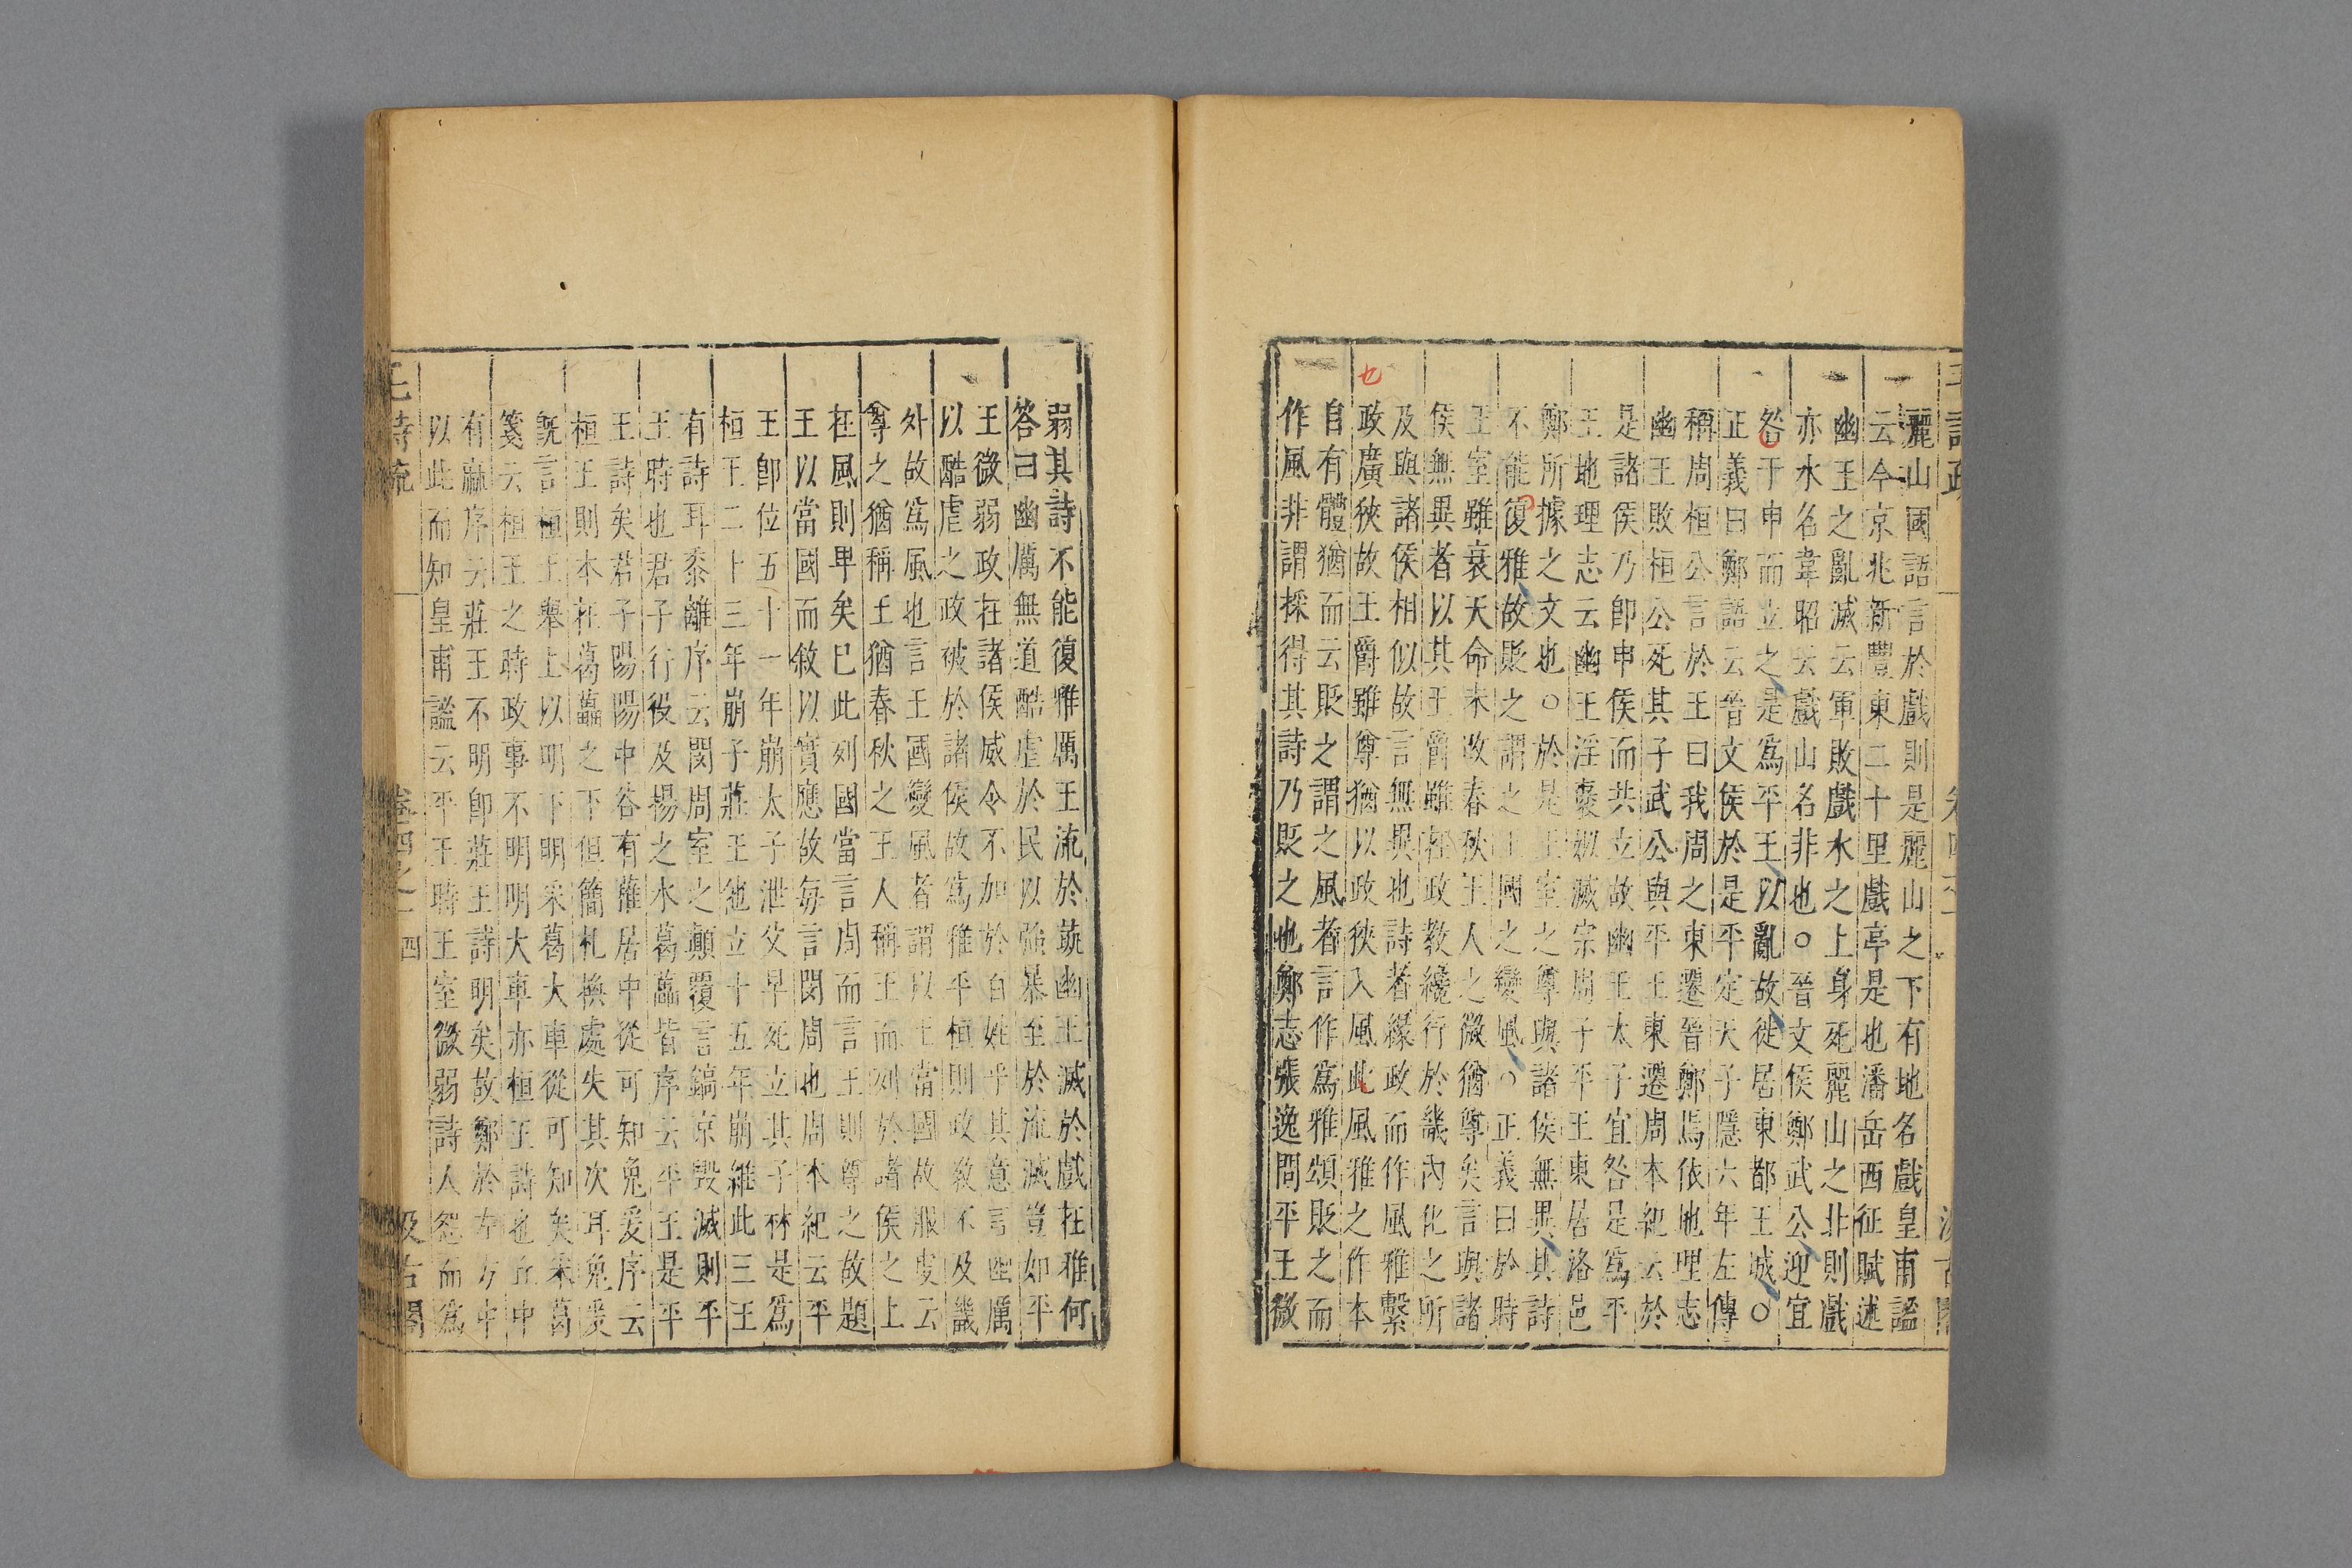 麗山國語言於戲則是麗山之下有地名戲皇甫謐
云今京兆新豐東二十里戲亭是也潘岳西征賦述
幽王之亂滅云軍敗戲水之上身死麗山之北則戲
亦水名韋昭云戲山名非也○晉文侯鄭武公迎宜
咎于申而立之是爲平王以亂故徙居東都王城○
正義曰鄭語云晉文侯於是平定天子隱六年左傳
稱周桓公言於王曰我周之東遷晉鄭焉依地理志
幽王敗桓公死其子武公與平王東遷周本紀云於
是諸侯乃卽申侯而共立故幽王太子宜咎是爲平
王地理志云幽王淫褒姒滅宗周子平王東居洛邑
鄭所據之文也○於是王室之尊與諸侯無異其詩
不能復雅故貶之謂之王國之變風○正義曰於時
王室雖衰天命未改春秋王人之微猶尊矣言與諸
侯無異者以其王爵雖在政教纔行於畿內化之所
及與諸侯相似故言無異也詩者緣政而作風雅繫
政廣狹故王爵雖尊猶以政狹入風此風雅之作本
自有體猶而云貶之謂之風者言作爲雅頌貶之而
作風非謂採得其詩乃貶之也鄭志張逸問平王微
弱其詩不能復雅厲王流於彘幽王滅於戲在雅何
答曰幽厲無道酷虐於民以強暴至於流滅豈如平
王微弱政在諸侯威令不加於百姓乎其意言幽厲
以酷虐之政被於諸侯故爲雅平桓則政敎不及畿
外故爲風也言王國變風者謂以王當國故服虔云
尊之猶稱王猶春秋之王人稱王而列於諸侯之上
在風則卑矣已此列國當言周而言王則尊之故題
王以當國而敘以實應故每言閔周也周本紀云平
王卽位五十一年崩太子泄父早死立其子林是爲
桓王二十三年崩子莊王佗立十五年崩維此三王
有詩耳黍離序云閔周室之顛覆言鎬京毀滅則平
王時也君子行役及揚之水葛藟皆序云平王是平
王詩矣君子陽陽中谷有蓷居中從可知兔爰序云
桓王則本在葛藟之下但簡札換處失其次耳兔爰
旣言桓王舉上以明下明采葛大車從可知矣采葛
箋云桓王之時政事不明明大車亦桓王詩也丘中
有麻序云莊王不明卽莊王詩明矣故鄭於左方中
以此而知皇甫謐云平王時王室微弱詩人怨而爲